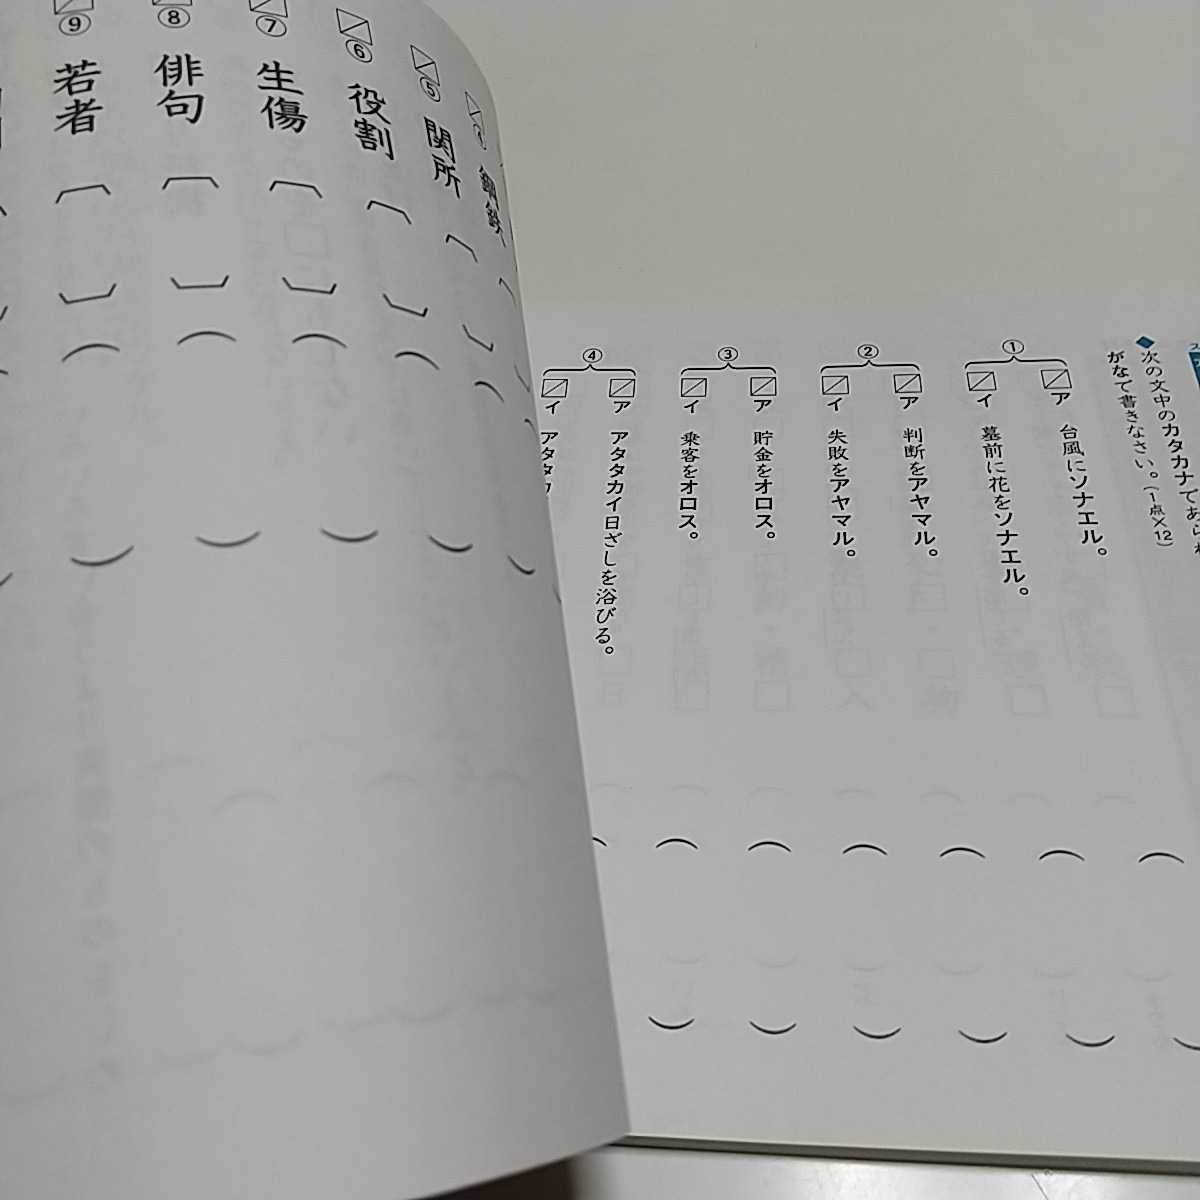 ◆次の文中のカタカナであらわ
がなで書きなさい。(1点×12)
①
ア 台風にソナエル。
イ 墓前に花をソナエル。
②
ア 判断をアヤマル。
イ 失敗をアヤマル。
③
ア 貯金をオロス。
イ 乗客をオロス。
④
ア アタタカイ日ざしを浴びる。
イ アタタカ
④ 鋼鉄
⑤ 関所
⑥ 役割
⑦ 生傷
⑧ 俳句
⑨ 若者